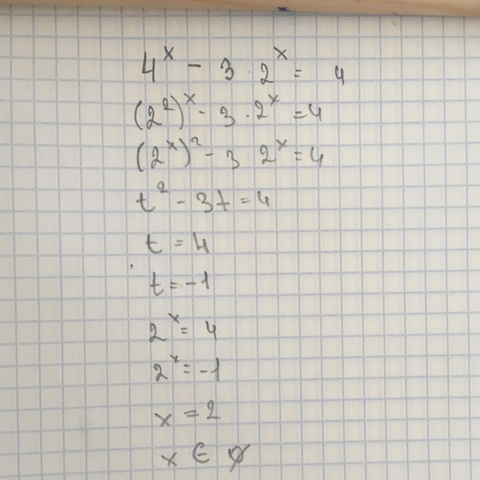 4^x - 3 · 2^x = 4
(2^2)^x - 3 · 2^x = 4
(2^x)^2 - 3 · 2^x = 4
t^2 - 3t = 4
t = 4
t = -1
2^x = 4
2^x = -1
x = 2
x ∈ ∅